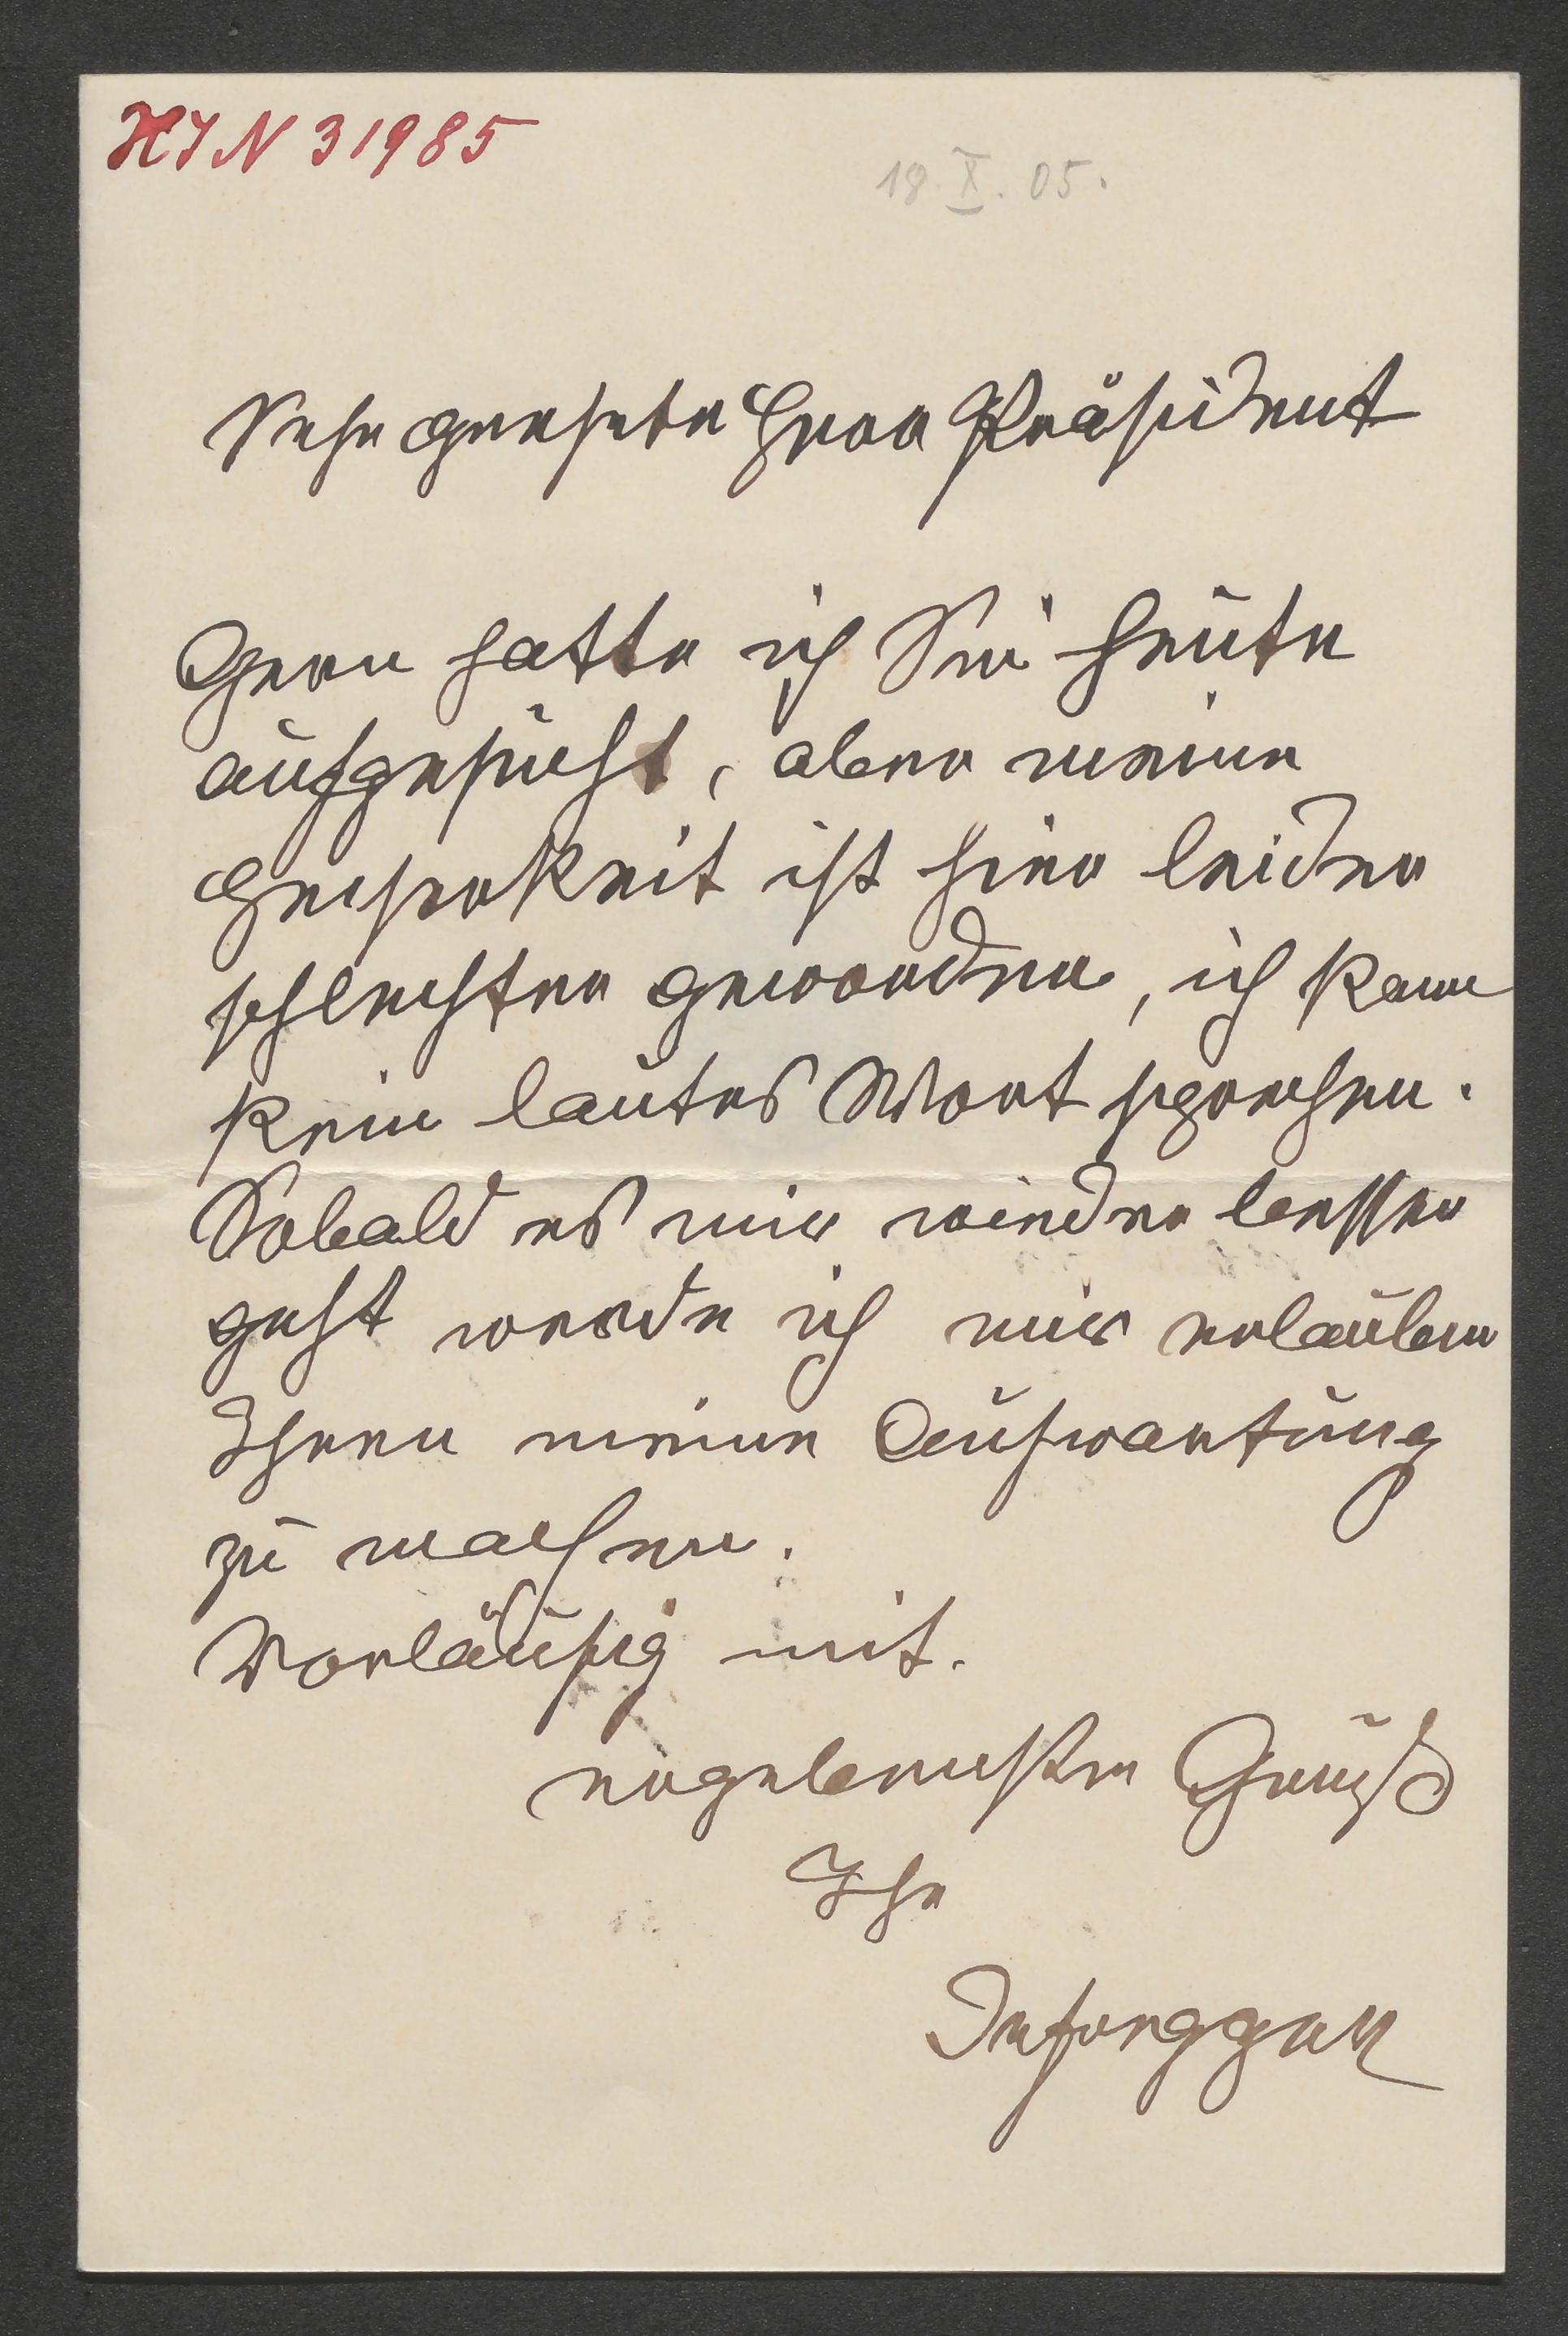 HIN 31985
18 X. 05.
Sehr geehrter Herr Präsident
Gern hätte ich Sie heute
aufgesucht, aber meine
Heiserkeit ist hier leider
schlechter geworden, ich kann
kein lautes Wort sprechen.
Sobald es mir wieder besser
geht werde ich mir erlauben
Ihnen meine Aufwartung
zu machen.
Vorläufig mit.
ergebensten Gruß
Ihr
Defregger